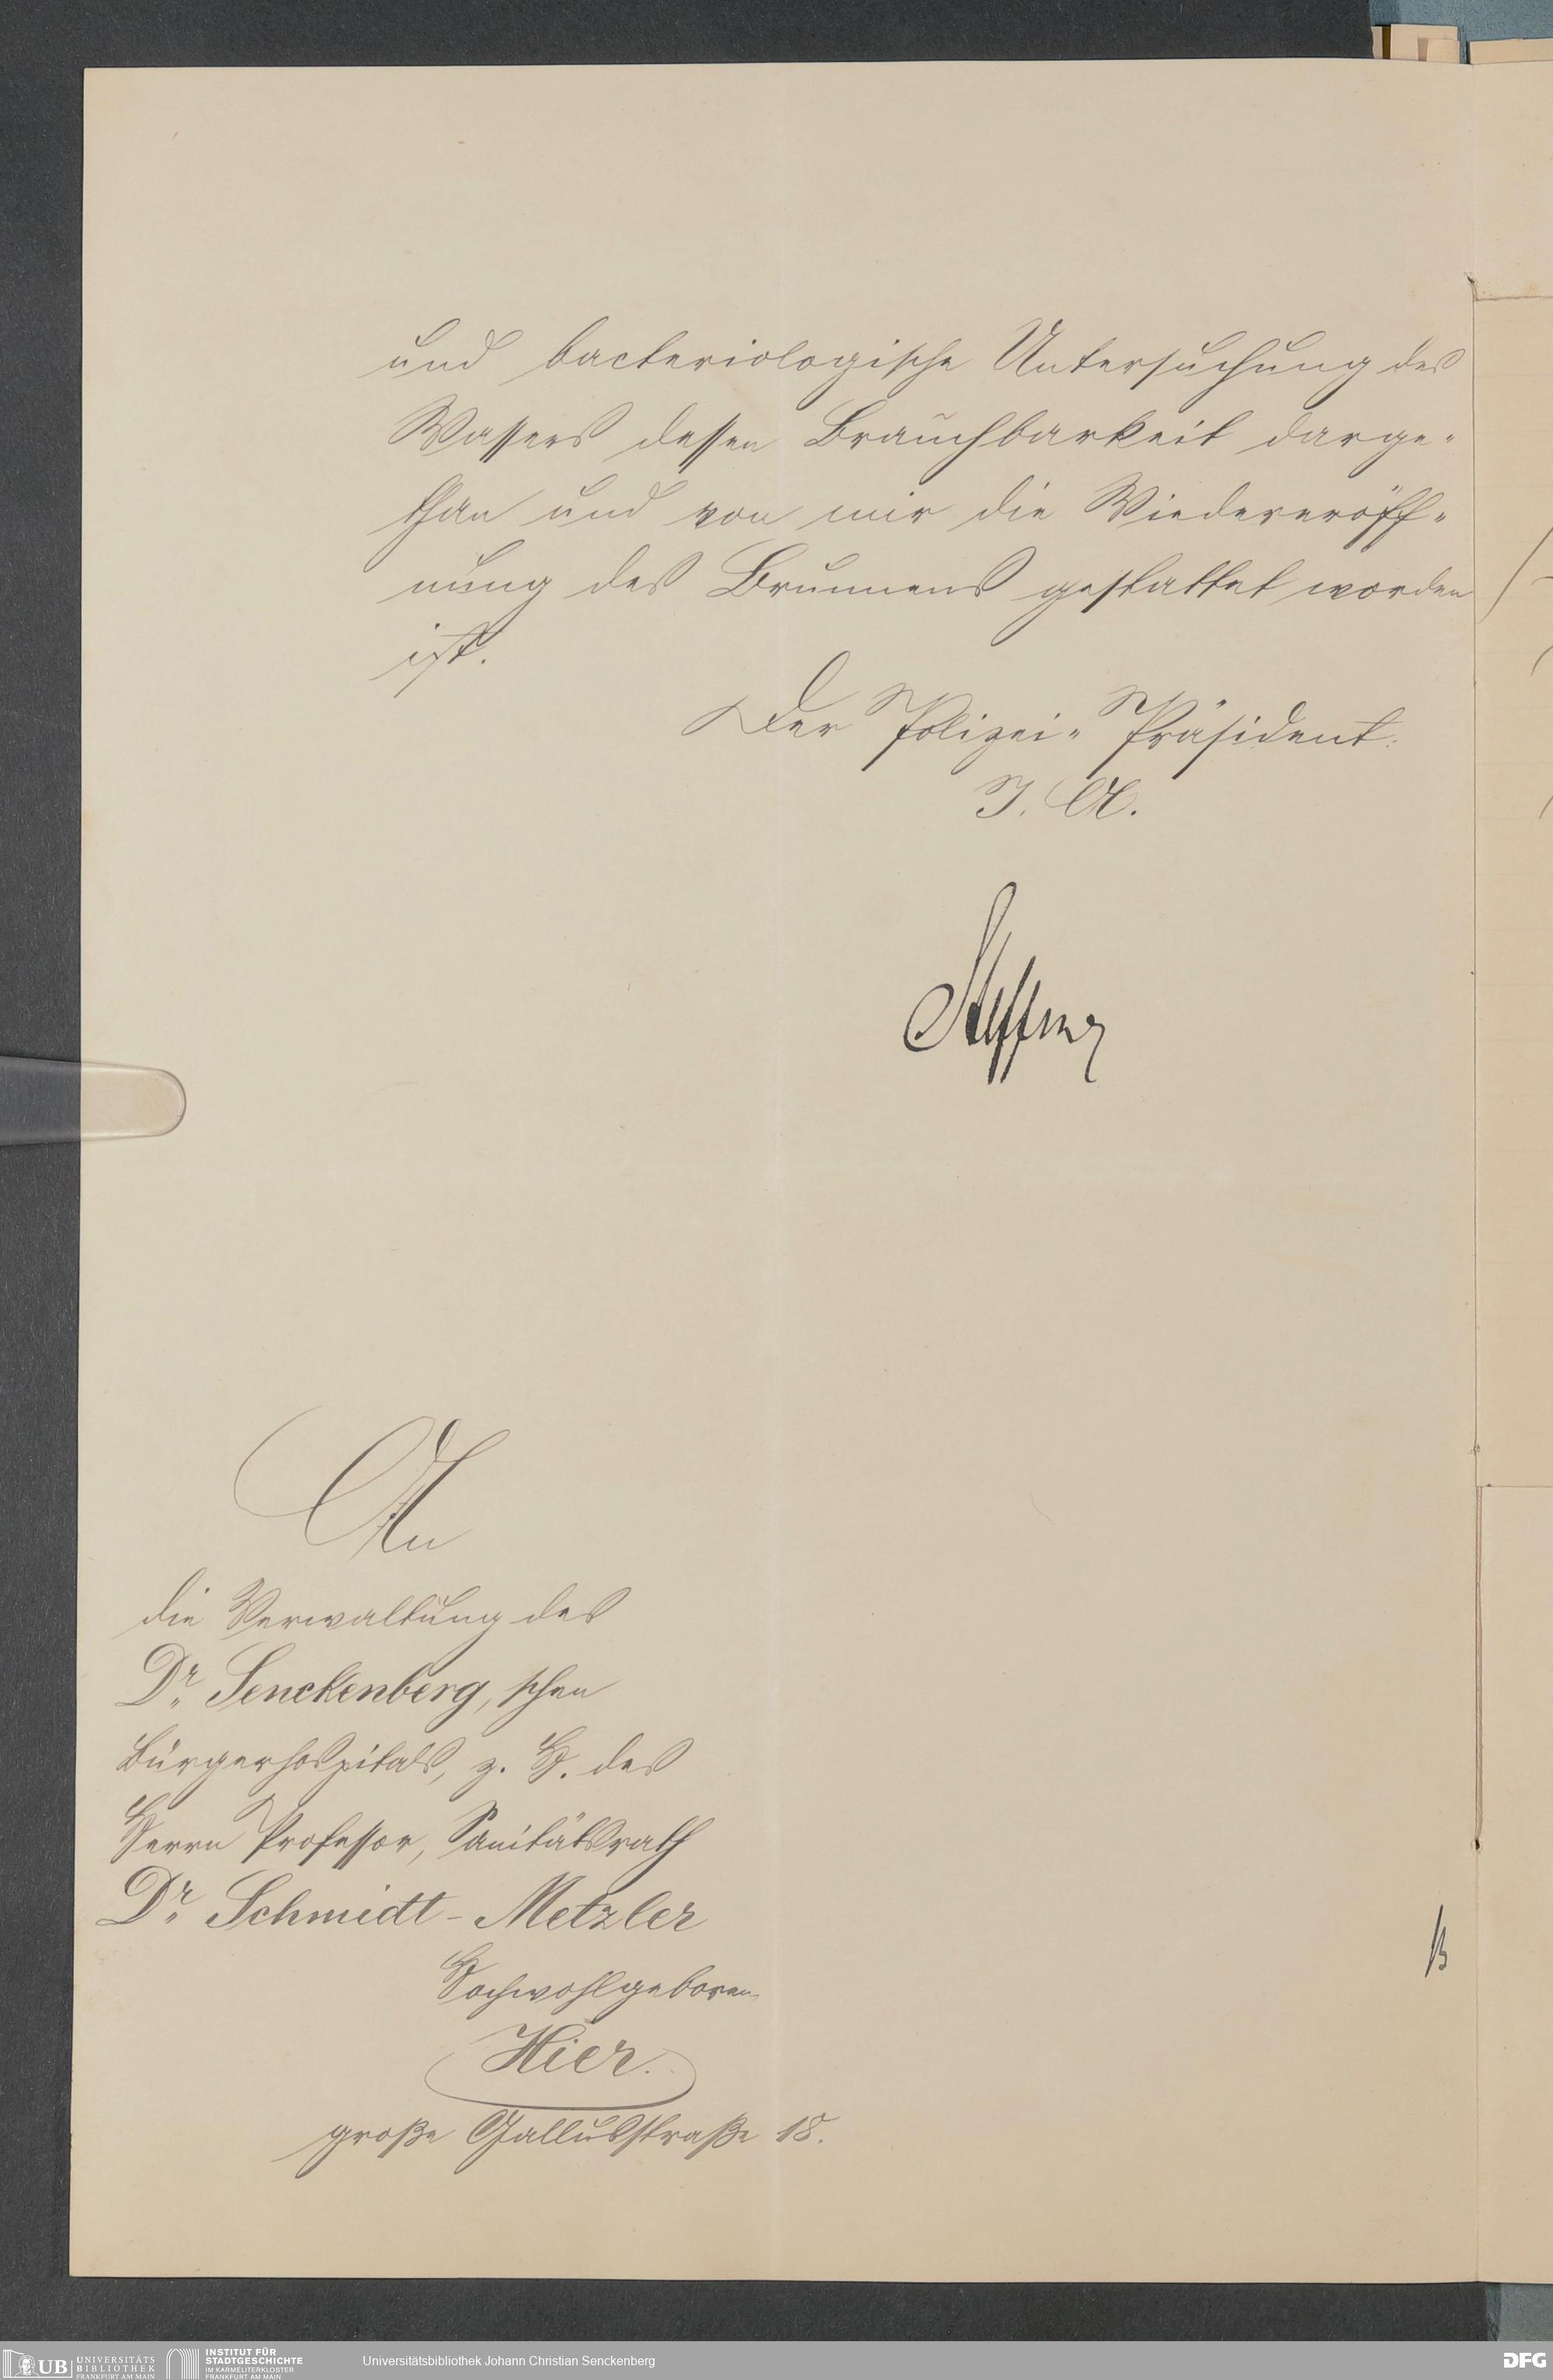 und bacteriologische Untersuchung des
Wassers dessen Brauchbarkeit darge-
than und von mir die Wiedereröff-
nung des Brunnens gestattet worden
ist.
Der Polizei-Präsident.
I. A.
An
die Verwaltung des
Dr. Senckenberg'schen
Bürgerhospitals, z. H. des
Herrn Professor, Sanitätsrath
Dr. Schmidt-Metzler
Hochwohlgeboren
Hier.
große Gallusstraße 18.
UB UNIVERSITÄTS
BIBLIOTHEK
FRANKFURT AM MAIN
INSTITUT FÜR
STADTGESCHICHTE
IM KARMELITERKLOSTER
FRANKFURT AM MAIN
Universitätsbibliothek Johann Christian Senckenberg
DFG